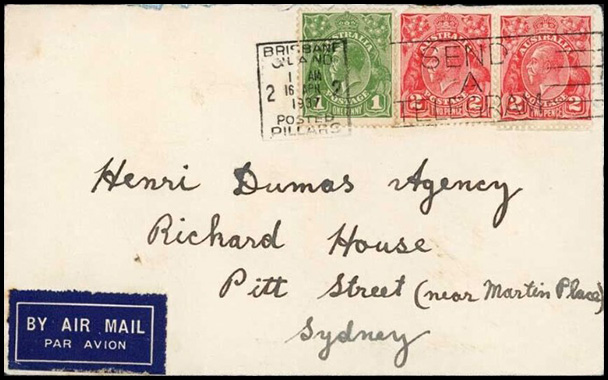 AUSTRALIA
1 POSTAGE 1
ONE PENNY
AUSTRALIA
2 POSTAGE 2
TWO PENCE
AUSTRALIA
2 POSTAGE 2
TWO PENCE
BRISBANE
QLAND
1 AM
2 16 APR 7
1937
POSTED
PILLARS
SEND
A
TELEGRAM
Henri Dumas Agency
Richard House
Pitt Street (near Martin Place)
Sydney
BY AIR MAIL
PAR AVION